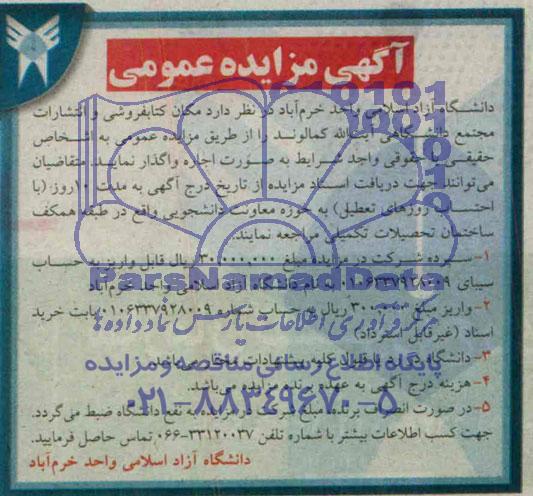 آگهی مزایده عمومی
دانشگاه آزاد اسلامی واحد خرم‌آباد در نظر دارد مکان کتابفروشی و انتشارات
مجتمع دانشگاهی آیت‌الله کمالوند را از طریق مزایده عمومی به اشخاص
حقیقی یا حقوقی واجد شرایط به صورت اجاره واگذار نماید. متقاضیان
می‌توانند جهت دریافت اسناد مزایده از تاریخ درج آگهی به مدت ۱۰ روز (با
احتساب روزهای تعطیل) به حوزه معاونت دانشجویی واقع در طبقه همکف
ساختمان تحصیلات تکمیلی مراجعه نمایند.
۱- سپرده شرکت در مزایده مبلغ ۳۰.۰۰۰.۰۰۰ ریال قابل واریز به حساب
سیبای ۰۱۰۶۳۳۷۹۲۸۰۰۹ به نام دانشگاه آزاد اسلامی واحد خرم‌آباد
۲- واریز مبلغ ۳۰۰.۰۰۰ ریال به حساب شماره ۰۱۰۶۳۳۷۹۲۸۰۰۹ بابت خرید
اسناد (غیرقابل استرداد)
۳- دانشگاه در رد یا قبول کلیه پیشنهادات مختار می‌باشد.
۴- هزینه درج آگهی به عهده برنده مزایده می‌باشد.
۵- در صورت انصراف برنده، مبلغ شرکت در مزایده به نفع دانشگاه ضبط می‌گردد.
جهت کسب اطلاعات بیشتر با شماره تلفن ۳۳۱۲۰۰۳۷-۰۶۶ تماس حاصل فرمایید.
دانشگاه آزاد اسلامی واحد خرم‌آباد
ParsNamadData
مرکز فرآوری اطلاعات پارس نماد داده ها
پایگاه اطلاع رسانی مناقصه و مزایده
۰۲۱-۸۸۳۴۹۶۷۰-۵